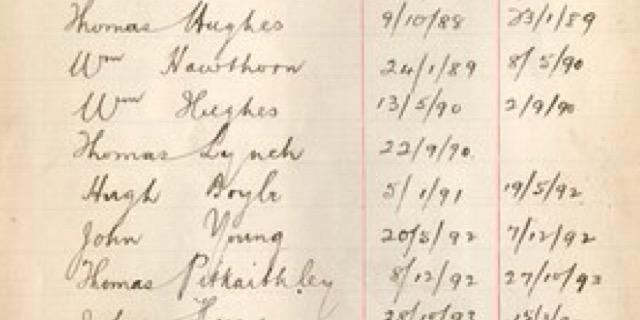 Thomas Hughes 9/10/88 23/1/89
Wm Hawthorn 24/1/89 8/5/90
Wm Hughes 13/5/90 2/9/90
Thomas Lynch 22/9/90
Hugh Boyle 5/1/91 19/5/92
John Young 20/5/92 7/12/92
Thomas Pitkaithley 8/12/92 27/10/93
28/10/93